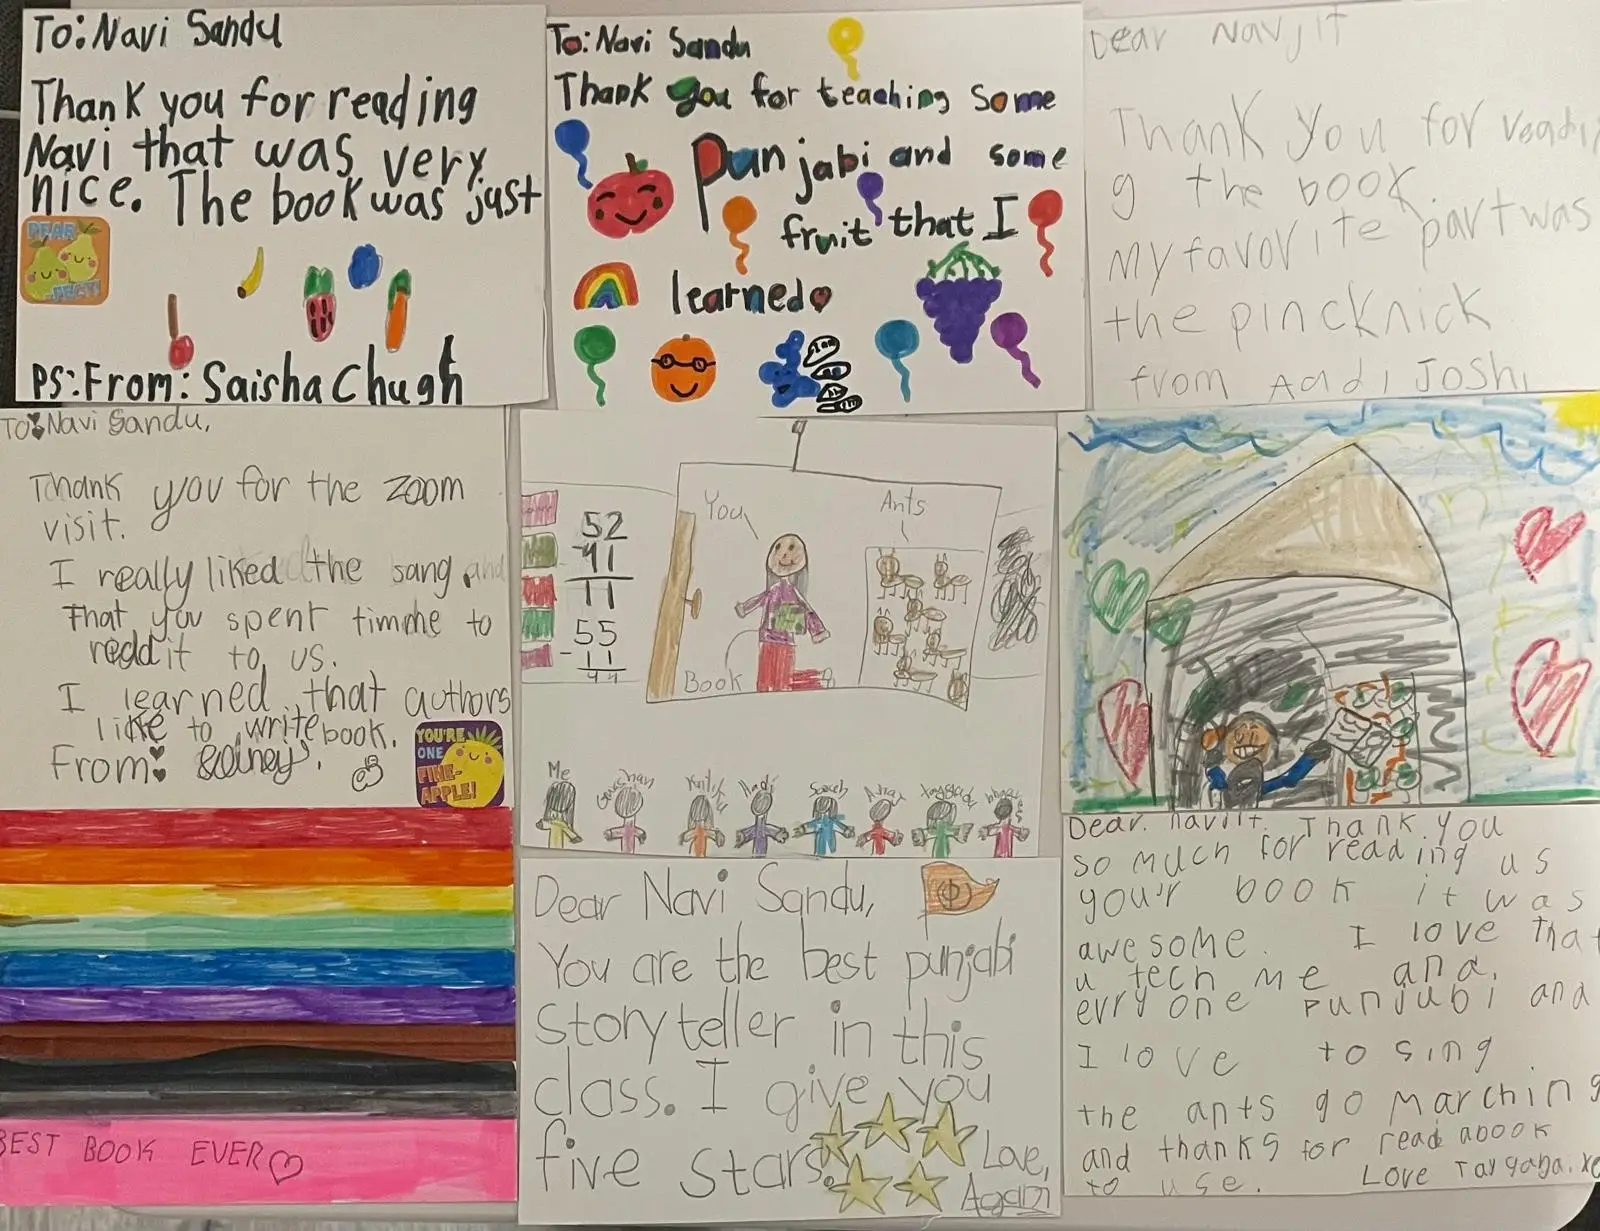 To: Navi Sandu
Thank you for reading
Navi that was very
nice. The book was just
PEAR
-FECT!
PS: From: Saisha Chugh
To: Navi Sandu
Thank you for teaching some
Punjabi and some
fruit that I
learned
Dear Navjit
Thank you for readi
g the book.
my favorite part was
the pincknick
from Aadi Joshi
To: Navi Sandu,
Thank you for the zoom
visit.
I really liked the sang and
that you spent timme to
redd it to us.
I learned that authors
like to write book.
From:
YOU'RE
ONE
FINE-
APPLE!
52
-41
11
55
-11
44
You
Ants
Book
Me
Aadi
BEST BOOK EVER
Dear Navi Sandu,
You are the best punjabi
storyteller in this
class. I give you
five stars.
Love,
Agam
Dear. navjit. Thank you
so much for reading us
your book it was
awesome. I love that
u tech me and
evryone punjubi and
I love to sing
the ants go marching
and thanks for read abook
to use.
Love